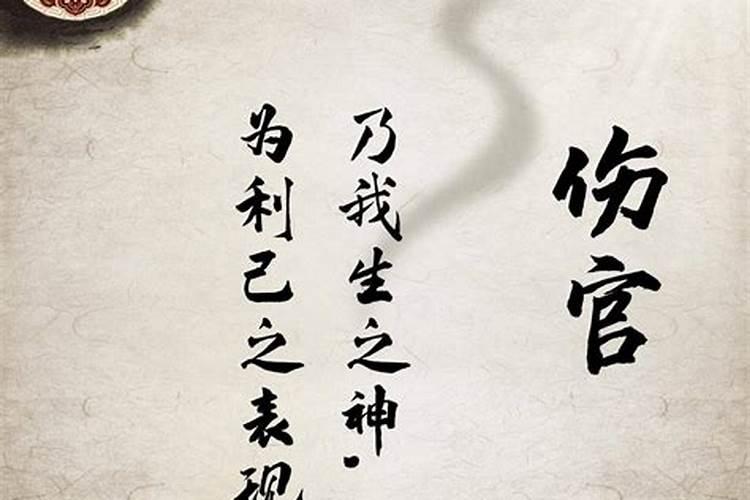 伤官
乃我生之神，
为利己之表现